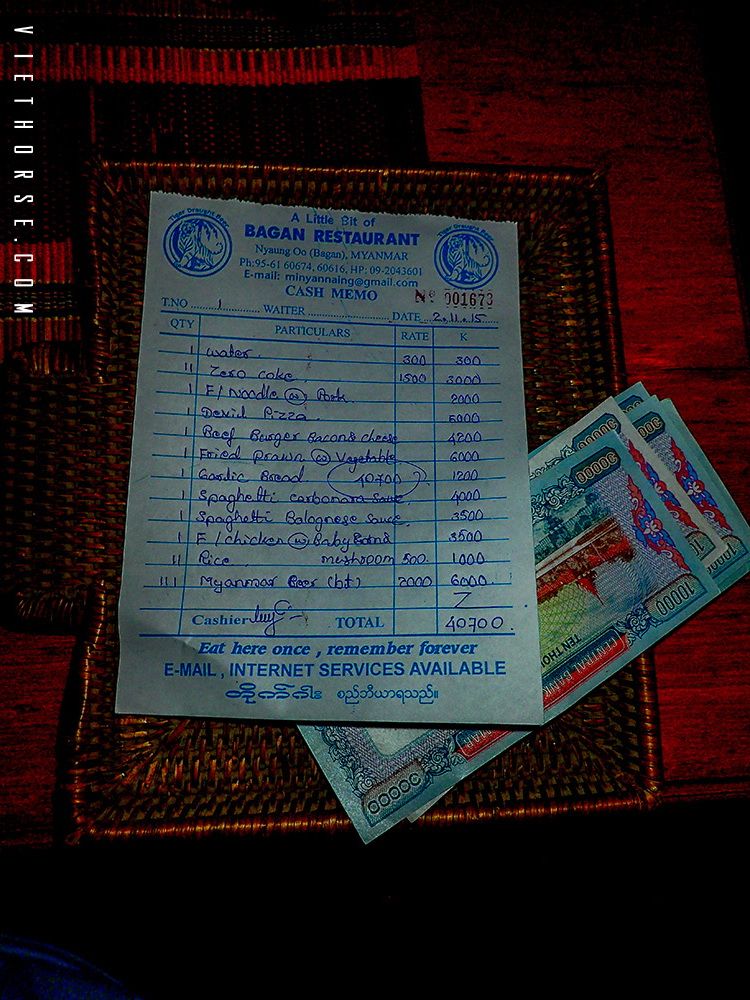 VIETHORSE.COM
Tiger Draught Beer
Tiger Draught Beer
A Little Bit of
BAGAN RESTAURANT
Nyaung Oo (Bagan), MYANMAR
Ph:95-61 60674, 60616, HP: 09-2043601
E-mail: minyannaing@gmail.com
CASH MEMO
No 001673
T.NO 1 WAITER DATE 2.11.15
QTY PARTICULARS RATE K
1 water 300 300
11 Zero coke 1500 3000
1 F/Noodle w Pork 2000
1 Devil Pizza 5000
1 Beef Burger Bacon & cheese 4200
1 Fried prawn w Vegetable 6000
1 Garlic Bread 40700 1200
1 Spaghetti carbonara sauce 4000
1 Spaghetti Bolognese Sauce 3500
1 F/chicken w Baby 3500
11 Rice mushroom 500 1000
111 Myanmar Beer (bt) 2000 6000
Cashier TOTAL 40700
Eat here once , remember forever
E-MAIL , INTERNET SERVICES AVAILABLE
တိုက်ဂါး စည်ဘီယာရသည်။
10000
10000
10000
TEN THO
CENTRAL BAN
MAR
10000